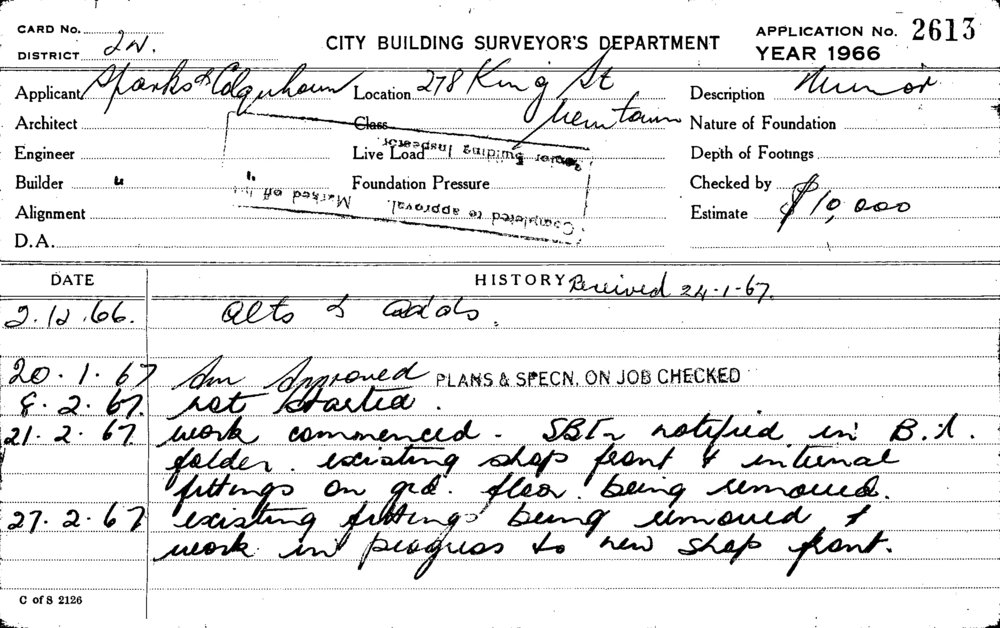 CARD No. APPLICATION No. 2613
DISTRICT 2N. CITY BUILDING SURVEYOR'S DEPARTMENT YEAR 1966
Applicant Sparks & Colquhoun Location 278 King St Description Minor
Architect Class Newtown Nature of Foundation
Engineer Live Load Depth of Footings
Builder " " Foundation Pressure Checked by
Alignment Estimate $10,000
D.A.
Completed to approval.
Marked off
Senior Building Inspector.
DATE HISTORY Received 24-1-67.
2.12.66. Alts & adds.
20.1.67 Am Approved PLANS & SPECN. ON JOB CHECKED
8.2.67. not started.
21.2.67. work commenced - SBI notified in B.I.
folder. existing shop front & internal
fittings on grd. floor being removed.
27.2.67 existing fittings being removed &
work in progress to new shop front.
C of S 2126